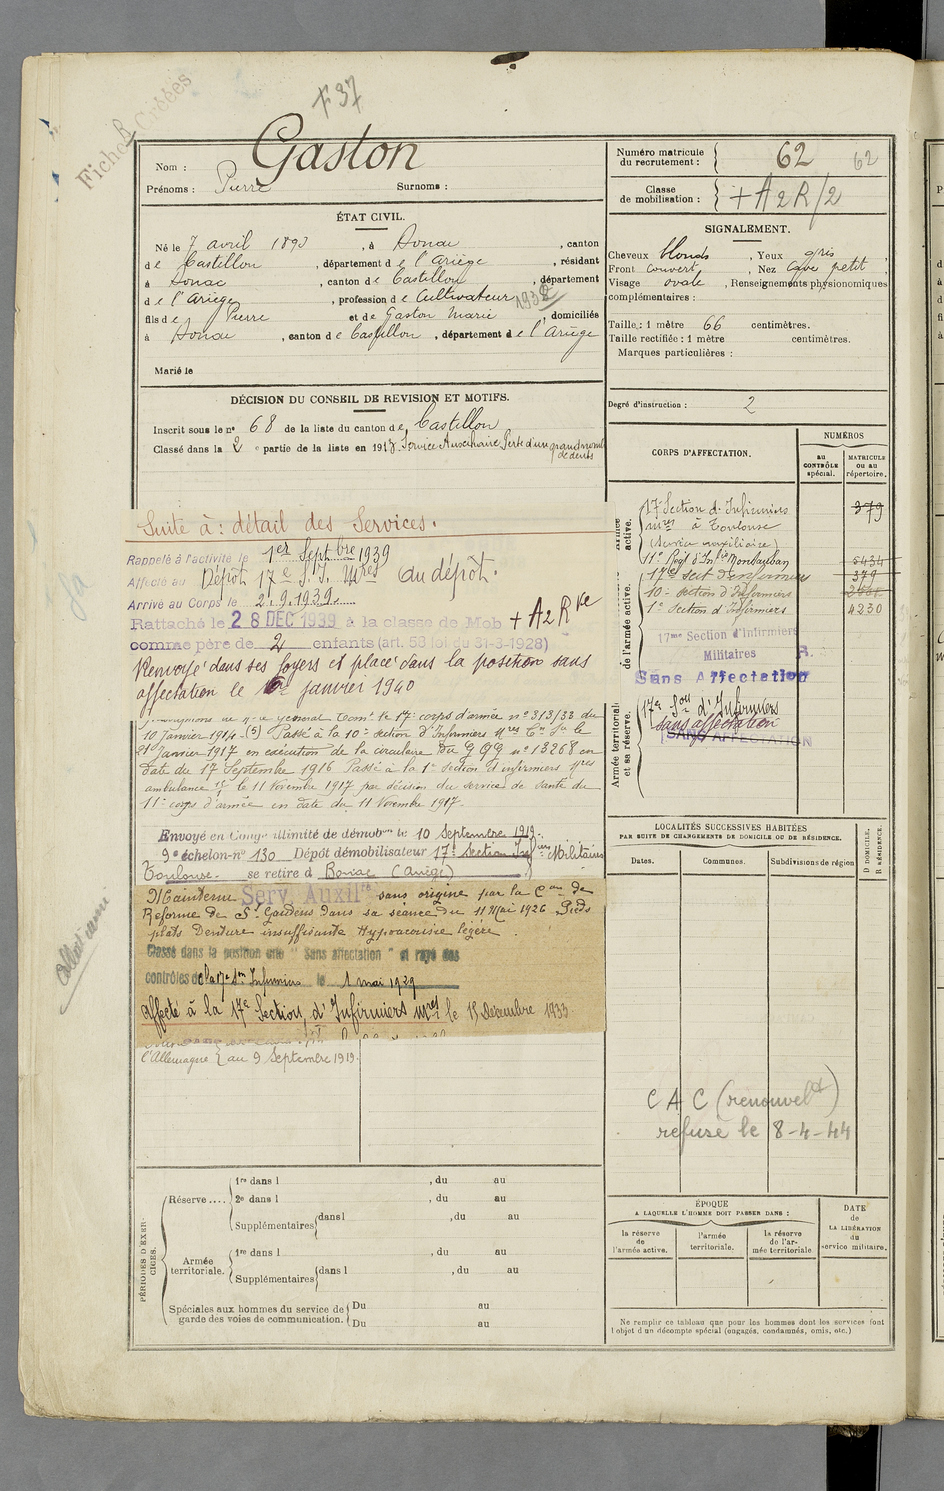 F37
Fiches Créées
Gaston
Nom :
Prénoms : Pierre Surnoms :
ÉTAT CIVIL.
Né le 7 avril 1893, à Bonac, canton
de Castillon, département de l'Ariège, résidant
à Bonac, canton de Castillon, département
de l'Ariège, profession de Cultivateur 1932
fils de Pierre et de Gaston Marie, domiciliés
à Bonac, canton de Castillon, département de l'Ariège
Marié le
DÉCISION DU CONSEIL DE REVISION ET MOTIFS.
Inscrit sous le n° 68 de la liste du canton de Castillon
Classé dans la 2e partie de la liste en 1913. Service Auxiliaire. Perte d'un grand nomb
de dents
Suite à : détail des Services.
Rappelé à l'activité le 1er Septbre 1939
Affecté au Dépôt 17e S.I. Mres du dépôt.
Arrivé au Corps le 2.9.1939.
Rattaché le 28 DEC 1939 à la classe de Mob + A2Rve
comme père de 2 enfants (art. 58 loi du 31-3-1928)
Renvoyé dans ses foyers et placé dans la position sans
affectation le 6 janvier 1940
général Comt le 17e corps d'armée n° 313/33 du
10 Janvier 1914 - (5) Passé à la 10e section d'Infirmiers Mres
21 Janvier 1917 en exécution de la circulaire du G Q G n° 13268 en
date du 17 Septembre 1916 Passé à la 1e section d'infirmiers
ambulance le 11 Novembre 1917 par décision du service de santé du
11e corps d'armée en date du 11 Novembre 1917.
Envoyé en Congé illimité de démobon le 10 Septembre 1919.
9e échelon-n° 130 Dépôt démobilisateur 17e Section Infirs Militaires
Toulouse. se retire à Bonac (Ariège)
Maintenu Serv. Auxilre sans origine par la Con de
Réforme de St Gaudens dans sa séance du 11 Mai 1926 Pieds
plats Denture insuffisante Hypoacousie légère.
Classé dans la position dite " Sans affectation " et rayé des
contrôles de la 17e Son Infirmiers le 1 mai 1929
affecté à la 17e Section d'Infirmiers Mres le 15 Décembre 1933
l'Allemagne } au 9 Septembre 1919.
PÉRIODES D'EXERCICES.
Réserve ....
1re dans l , du au
2e dans l , du au
Supplémentaires { dans l , du au
Armée territoriale.
1re dans l , du au
Supplémentaires { dans l , du au
Spéciales aux hommes du service de garde des voies de communication.
Du au
Du au
Numéro matricule du recrutement : 62 62
Classe de mobilisation : + A2R/2
SIGNALEMENT.
Cheveux blonds, Yeux gris,
Front couvert, Nez Cave petit,
Visage ovale, Renseignements physionomiques
complémentaires :
Taille : 1 mètre 66 centimètres.
Taille rectifiée : 1 mètre centimètres.
Marques particulières :
Degré d'instruction : 2
CORPS D'AFFECTATION.
NUMÉROS
au CONTRÔLE spécial.
MATRICULE ou au répertoire.
Armée active.
17e Section d'Infirmiers 379
Mres à Toulouse
(Service auxiliaire)
11e Régt d'Infie Montauban 5434
17e sect d'infirmiers 379
10e section d'Infirmiers
1e Section d'Infirmiers 4230
de l'armée active.
17me Section d'Infirmiers
Militaires R.
Sans Affectation
Armée territoriale et sa réserve.
17e Son d'Infirmiers
sans affectation
SANS AFFECTATION
LOCALITÉS SUCCESSIVES HABITÉES
PAR SUITE DE CHANGEMENTS DE DOMICILE OU DE RÉSIDENCE.
Dates.
Communes.
Subdivisions de région
D DOMICILE.
R RÉSIDENCE.
C A C (renouvelt)
refusé le 8-4-44
ÉPOQUE
A LAQUELLE L'HOMME DOIT PASSER DANS :
la réserve de l'armée active.
l'armée territoriale.
la réserve de l'armée territoriale
DATE de LA LIBÉRATION du service militaire.
Ne remplir ce tableau que pour les hommes dont les services font
l'objet d'un décompte spécial (engagés, condamnés, omis, etc.)